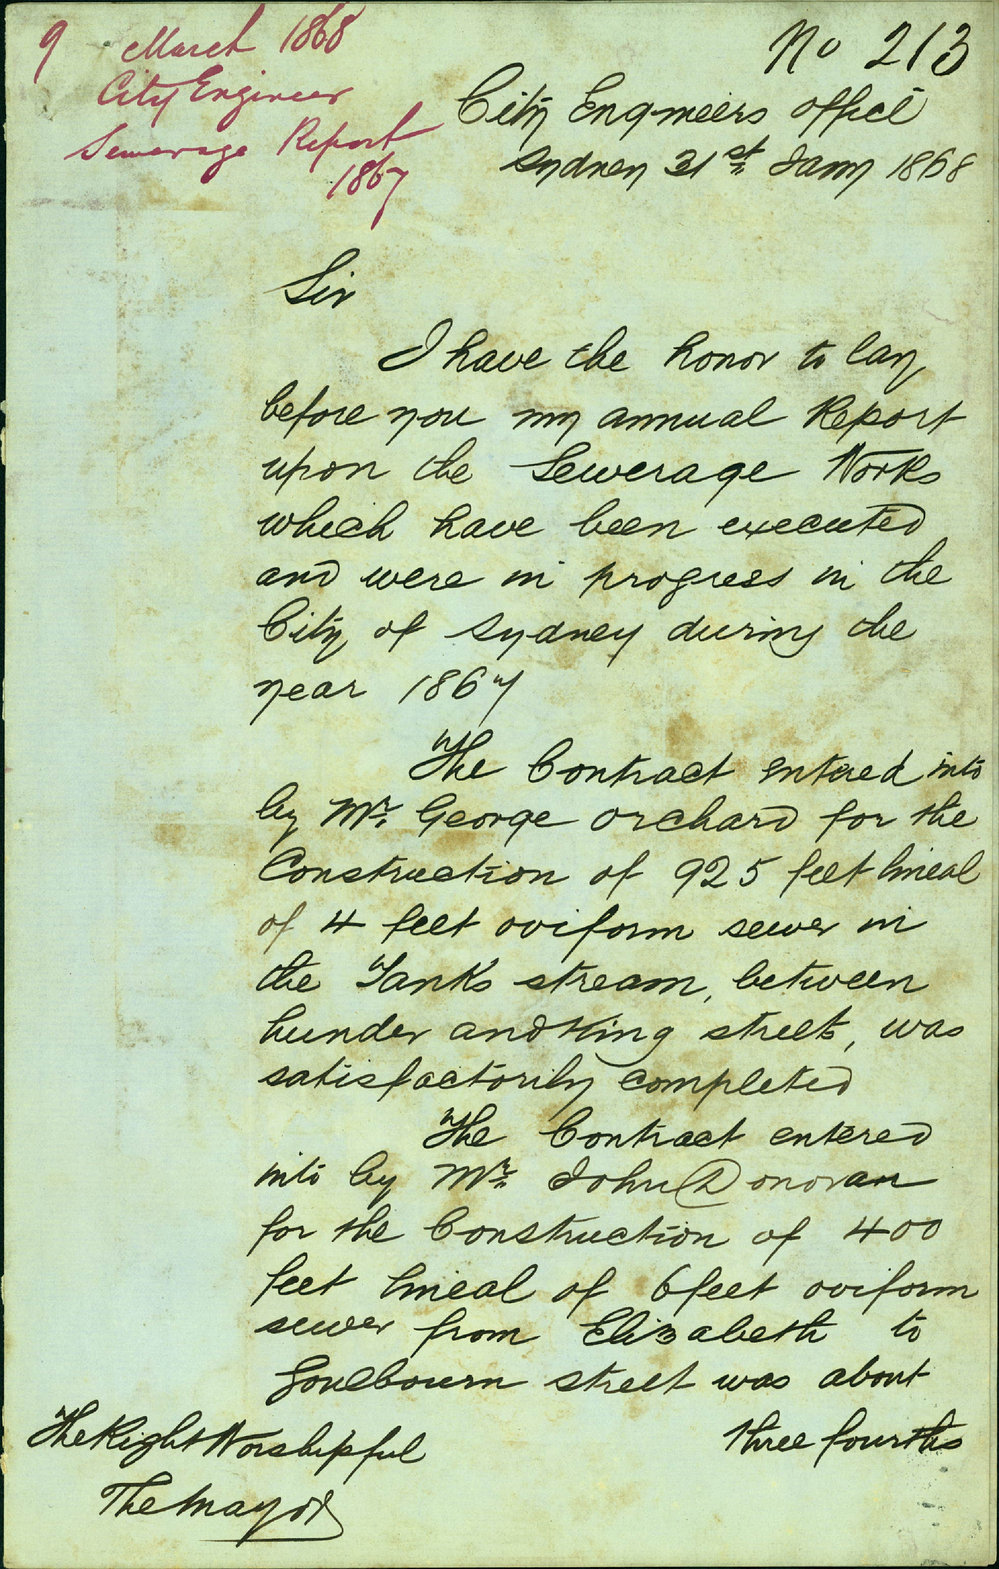 9 March 1868
City Engineer
Sewerage Report
1867
No 213
City Engineers office
Sydney 31st Jany 1868
Sir
I have the honor to lay
before you my annual Report
upon the Sewerage Works
which have been executed
and were in progress in the
City of Sydney during the
year 1867
The Contract entered into
by Mr. George Orchard for the
Construction of 925 feet lineal
of 4 feet oviform sewer in
the Tanks stream, between
hunder and King streets, was
satisfactorily completed
The Contract entered
into by Mr. John Donovan
for the Construction of 400
feet lineal of 6 feet oviform
sewer from Elizabeth to
Goulbourn street was about
three fourths
The Right Worshipful
The Mayor